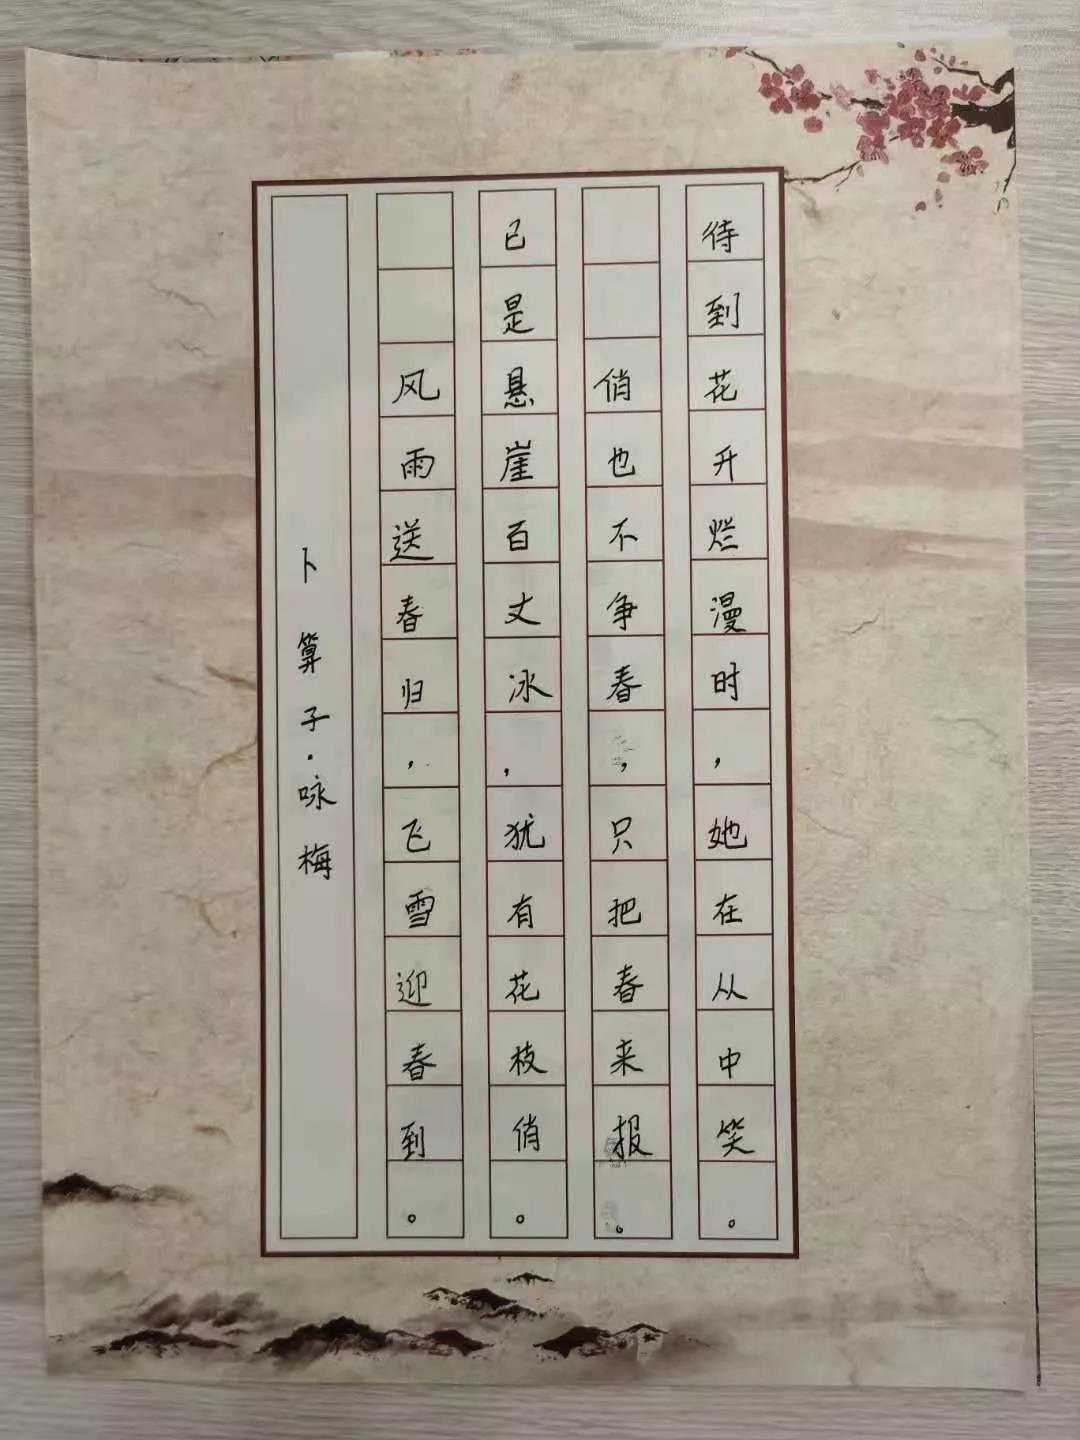 卜算子·咏梅
风雨送春归，飞雪迎春到。
已是悬崖百丈冰，犹有花枝俏。
俏也不争春，只把春来报。
待到花开烂漫时，她在从中笑。